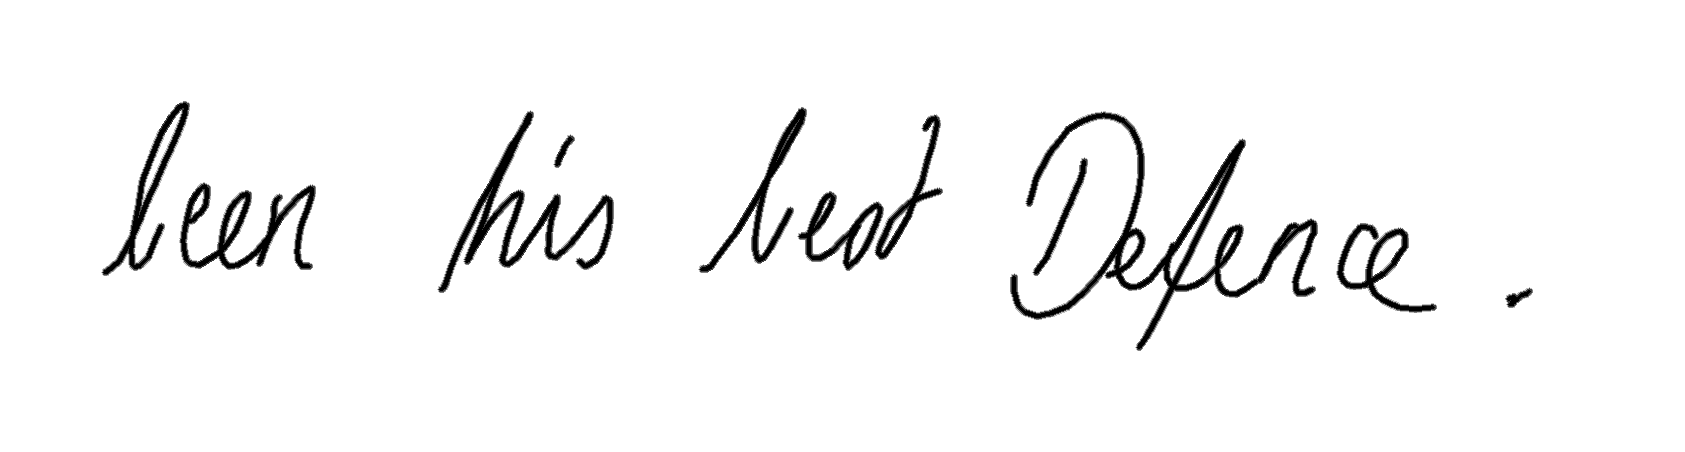 been his best Defence .